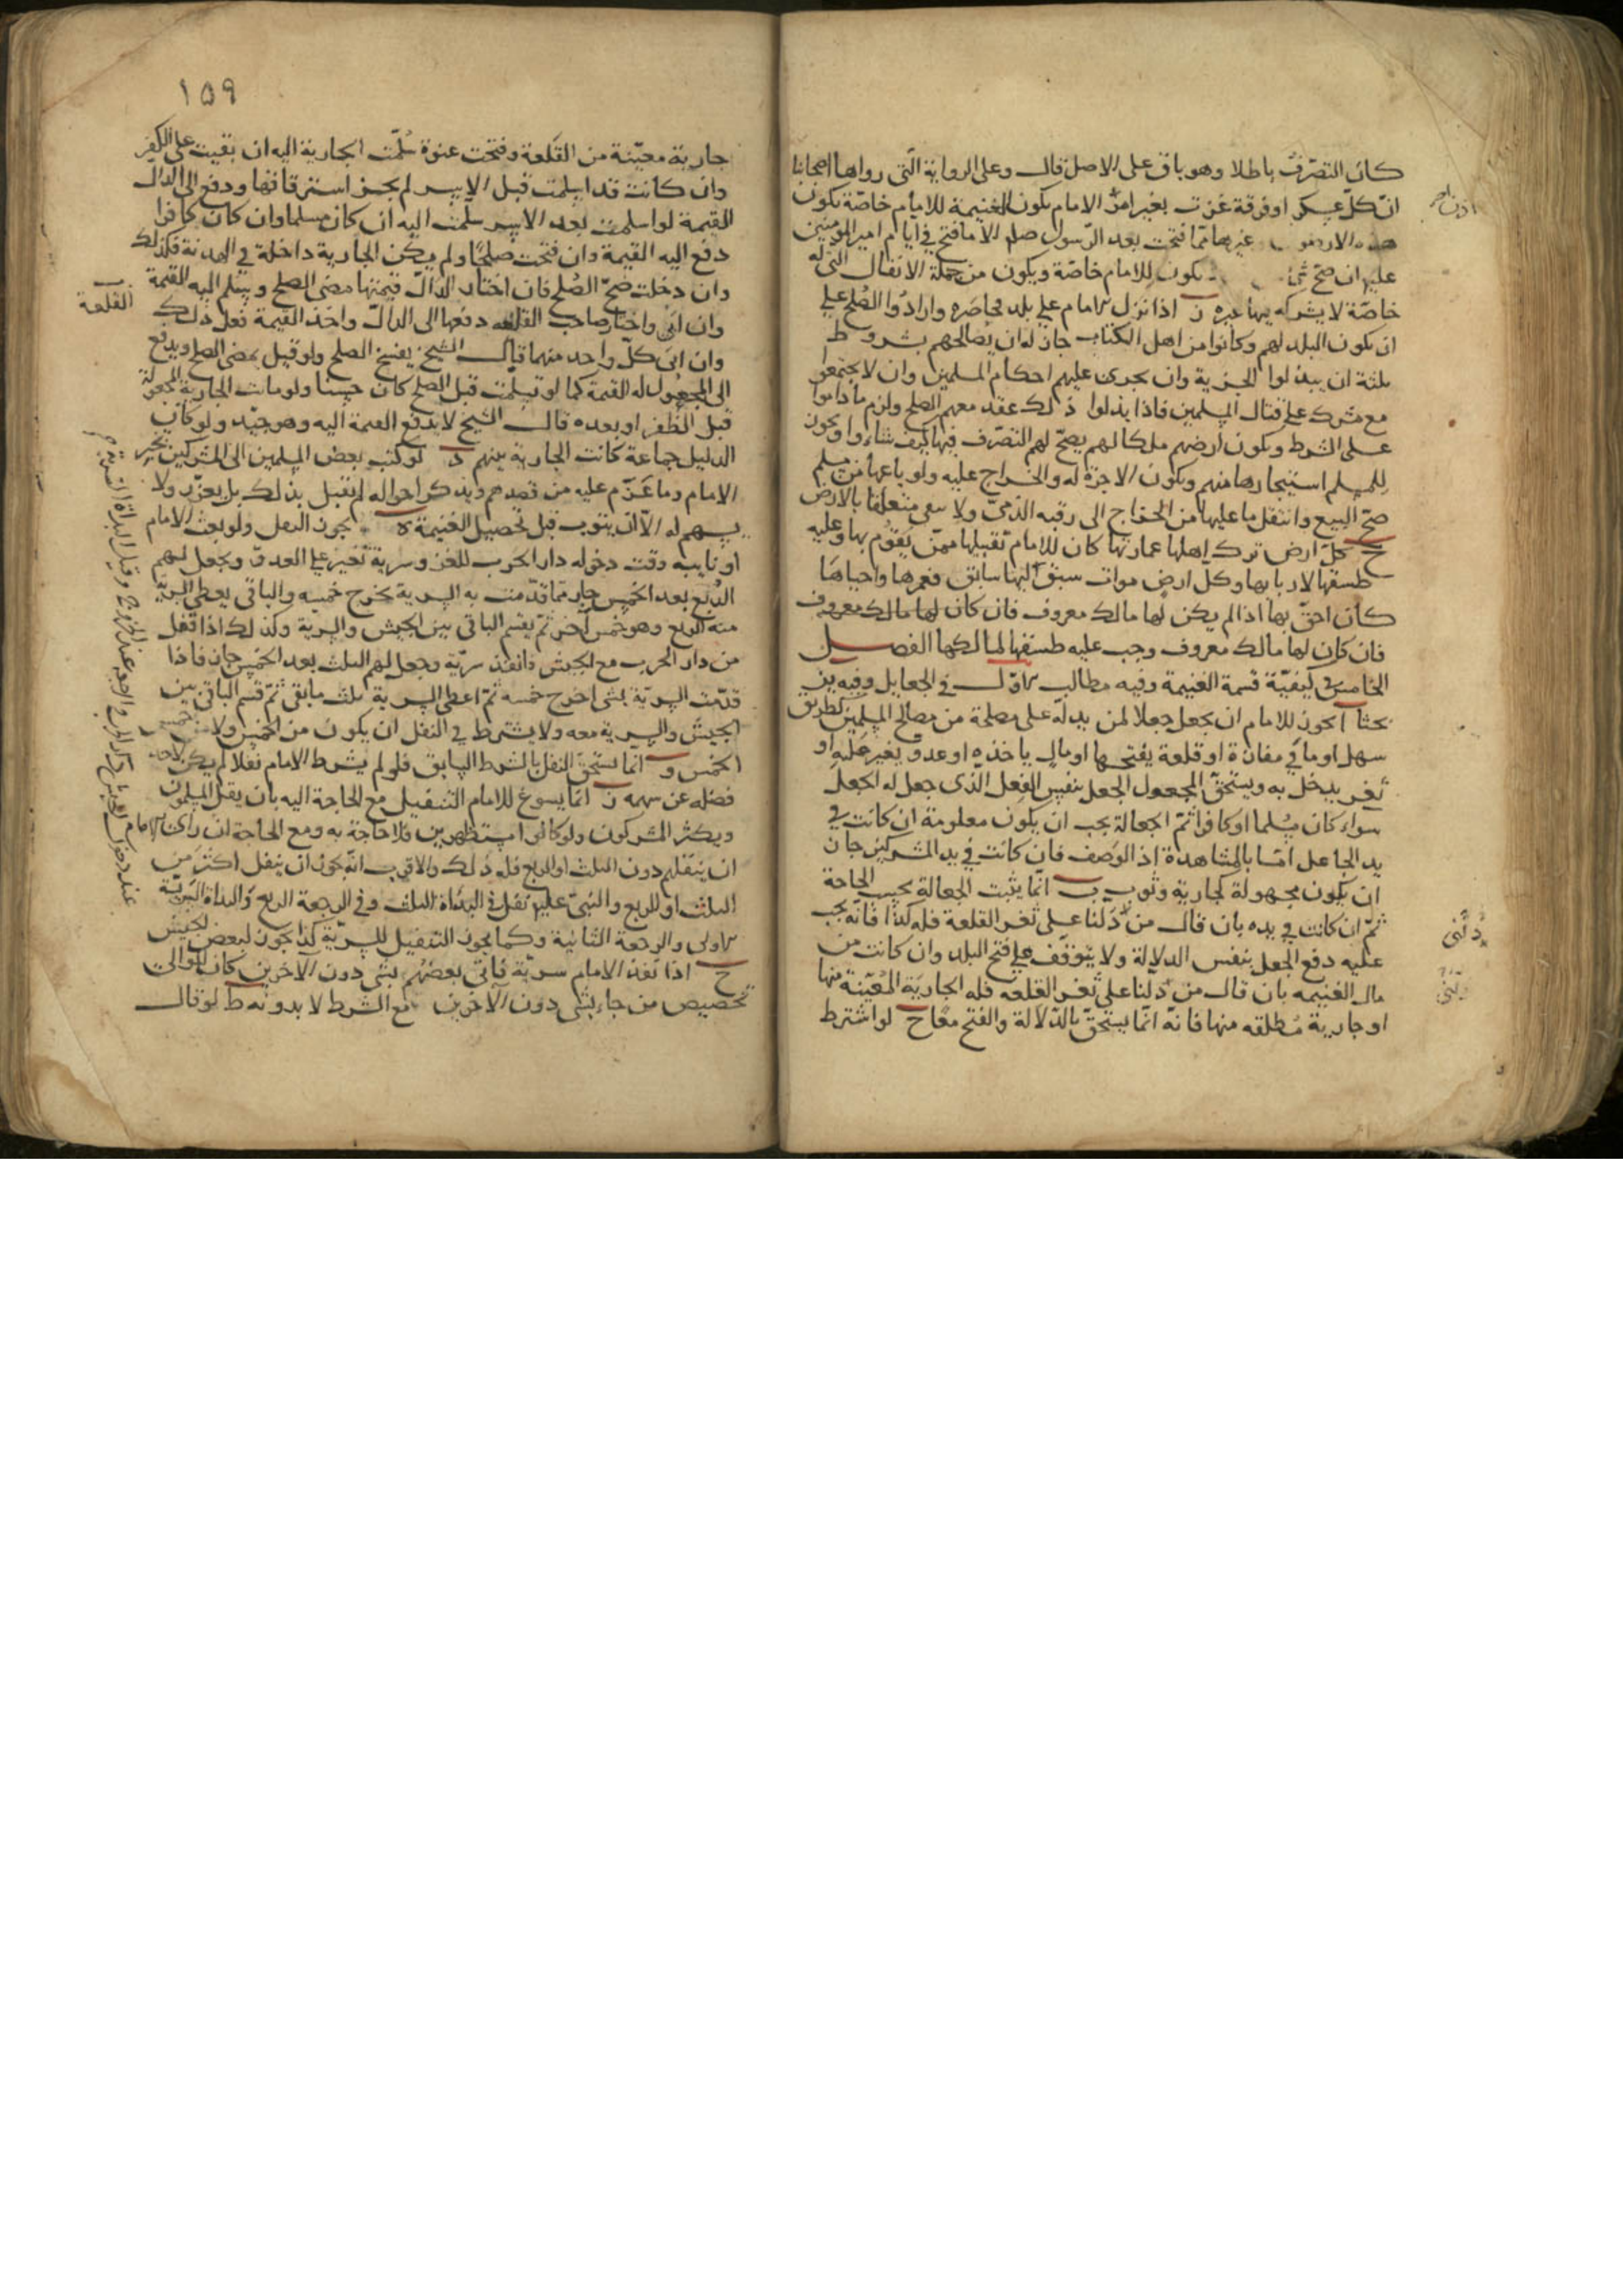 كان التصرّف باطلا وهو باق على الاصل قال وعلى الرواية الّتي رواها اصحابنا
انّ كلّ عسكر او فرقة غزت بغير امر الامام تكون الغنيمة للامام خاصّة تكون
هذه الارضون وغيرها ممّا فتحت بعد الرّسول صلم الا ما فتح في ايام امير المؤمنين
عليه ان صحّ شئ يكون للامام خاصّة ويكون من جملة الانفال الّتي له
خاصّة لا يشركه فيها غيره ز اذا نزل الامام على بلد محاصره وارادوا الصّلح على
ان يكون البلد لهم وكانوا من اهل الكتاب جاز له ان يصالحهم بشروط
ثلثة ان يبذلوا الجزية وان يجرى عليهم احكام المسلمين وان لا يجتمعوا
مع مشرك على قتال المسلمين فاذا بذلوا ذلك عقد معهم الصلح ولزم ما داموا
على الشرط ويكون ارضهم ملكا لهم يصحّ لهم التصرّف فيها كيف شاءوا ويجوز
للمسلم استيجارها منهم وتكون الاجرة له والخراج عليه ولو باعها من مسلم
صحّ البيع وانتقل ما عليها من الخراج الى رقبه الذمىّ ولا يبقى متعلقا بالارض
ح كلّ ارض ترك اهلها عمارتها كان للامام تقبيلها ممّن يقوم بها وعليه
طسقها لاربابها وكل ارض موات سبق اليها سابق فعمرها واحياها
كان احقّ بها اذا لم يكن لها مالك معروف فان كان لها مالك معروف
فان كان لها مالك معروف وجب عليه طسقها لمالكها الفصل
الخامس في كيفيّة قسمة الغنيمة وفيه مطالب الاول في الجعايل وفيه يز
بحثا ا يجوز للامام ان يجعل جعلا لمن يدله على مصلحة من مصالح المسلمين كطريق
سهل او ما في مفازة او قلعة يفتحها او مال ياخذه او عدو يغير عليه او
ثغر يدخل به ويستحق المجعول الجعل بنفس الفعل الّذى جعل له الجعل
سواء كان مسلما او كافرا ثمّ الجعالة يجب ان يكون معلومة ان كانت في
يد الجاعل امّا بالمشاهدة اذ الوصف فان كانت في يد المشركين جاز
ان يكون مجهولة كجارية وثوب ب انّما يثبت الجعالة بحسب الحاجة
ثمّ ان كانت في يده بان قال من دلنا على ثغر القلعة فله كذا فانه يجب
عليه دفع الجعل بنفس الدلالة ولا يتوقف على فتح البلد وان كانت من
مال الغنيمه بان قال من دلنا على ثغر القلعه فله الجارية المعيّنة منها
او جارية مطلقه منها فانّه انّما يستحقّ بالدّلالة والفتح معا ج لو اشترط
دلّنى
١٥٩
جارية معيّنة من القلعة وفتحت عنوة سلّمت الجارية اليه ان بقيت على الكفر
وان كانت قد اسلمت قبل الاسر لم يجز استرقاقها ودفع الى الدال
القيمة لو اسلمت بعد الاسر سلمت اليه ان كان مسلما وان كان كافرا
دفع اليه القيمة وان فتحت صلحا ولم يكن الجارية داخلة في الهدنة فكذلك
وان دخلت صحّ الصّلح فان اختار الدّال قيمتها مضى الصلح ويسلم اليه القيمة
وان ابى واختار صاحب القلعه دفعها الى الدالّ واخذ القيمة فعل ذلك
وان ابى كلّ واحد منهما قال الشيخ يفسخ الصلح ولو قيل يمضى الصلح ويدفع
الى المجعول له القيمة كما لو تسلمت قبل الصلح كان حسنا ولو ماتت الجارية المجعولة
قبل الظفر او بعده قال الشيخ لا يدفع القيمة اليه وهو جيّد ولو كان
الدليل جماعة كانت الجارية بينهم د لو كتب بعض المسلمين الى المشركين بخبر
الامام وما عزم عليه من قصدهم ويذكر احواله لم يقبل بذلك بل يعزّر ولا
يسهم له الّا ان يتوب قبل تحصيل الغنيمة ه يجوز النفل ولو بعث الامام
او نايبه وقت دخوله دار الحرب للغزو سرية تغير على العدوّ ويجعل لهم
الرّبع بعد الخمس جاز فما قدمت به السرية يخرج خمسه والباقى يعطى السريّة
منه الربع وهو خمس آخر ثمّ يقسم الباقى بين الجيش والسريّة وكذلك اذا قفل
من دار الحرب مع الجيش فانفذ سريّة وجعل لهم الثلث بعد الخمس جاز فاذا
قدّمت السريّة بشئ اخرج خمسه ثمّ اعطى السرية ثلث ما بقى ثمّ قسم الباقى بين
الجيش والسرية معه ولا يشترط في النفل ان يكون من الخمس ولا من خمس
الخمس و انّما يستحق النفل بالشرط السابق فلو لم يشرط الامام نفلا لم يكن لاحد
فضله عن سهمه ز انّما يسوغ للامام التنفيل مع الحاجة اليه بان يقل المسلمون
ويكثر المشركون ولو كانوا مستظهرين فلا حاجة به ومع الحاجة ان راى الامام
ان ينفلهم دون الثلث او الربع فله ذلك والاقرب انّه يجوز ان ينفل اكثر من
الثلث او الربع والنبىّ عليه نفل في البدأة الثلث وفي الرجعة الربع والبداة السريّة
الاولى والرجعة الثانية وكما يجوز التنفيل للسريّة كذا يجوز لبعض الجيش
ح اذا نفذ الامام سريّة فاتى بعضهم بشئ دون الاخرين كان للوالى
تخصيص من جاء بشئ دون الاخرين مع الشرط لا بدونه ط لو قال
القلعة